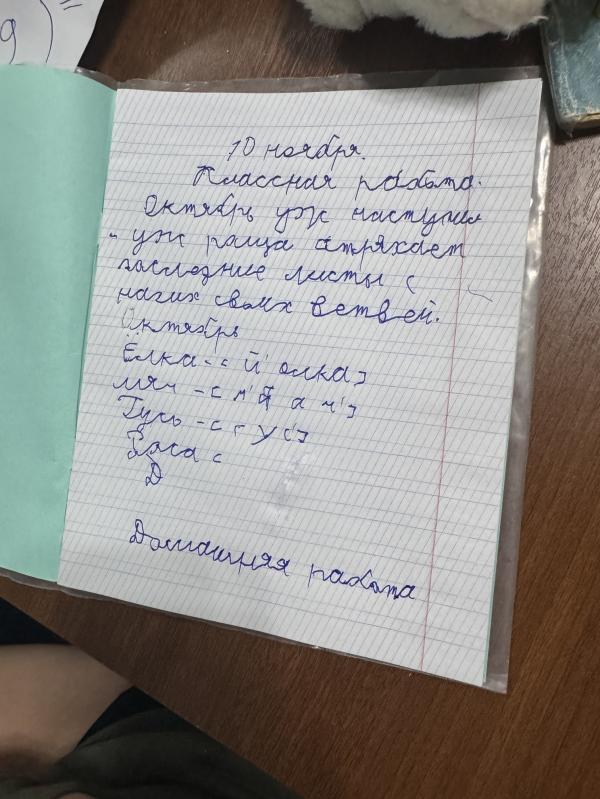 9)=
10 ноября.
Классная работа.
Октябрь уж наступил
- уж роща атряхает
последние листы с
нагих своих ветвей.
Октябрь
Ёлка - [й' олка]
мяч - [м' а ч']
Гусь - [г у с']
с
Д
Домашняя работа